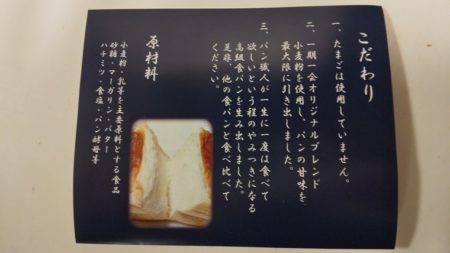 こだわり
一、たまごは使用していません。
二、一期一会オリジナルブレンド
小麦粉を使用し、パンの甘味を
最大限に引き出しました。
三、パン職人が一生に一度は食べて
欲しいという程のやみつきになる
高級食パンを生み出しました。
是非、他の食パンと食べ比べて
ください。
原材料
小麦粉・乳等を主要原料とする食品
砂糖・マーガリン・バター
ハチミツ・食塩・パン酵母等